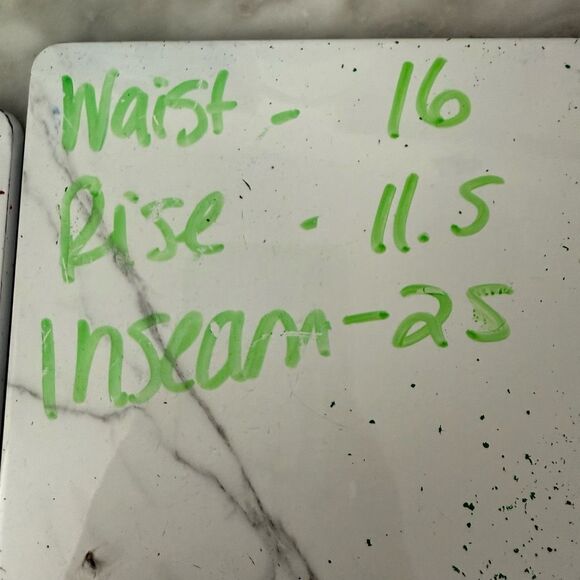 Waist - 16
Rise - 11.5
Inseam - 25